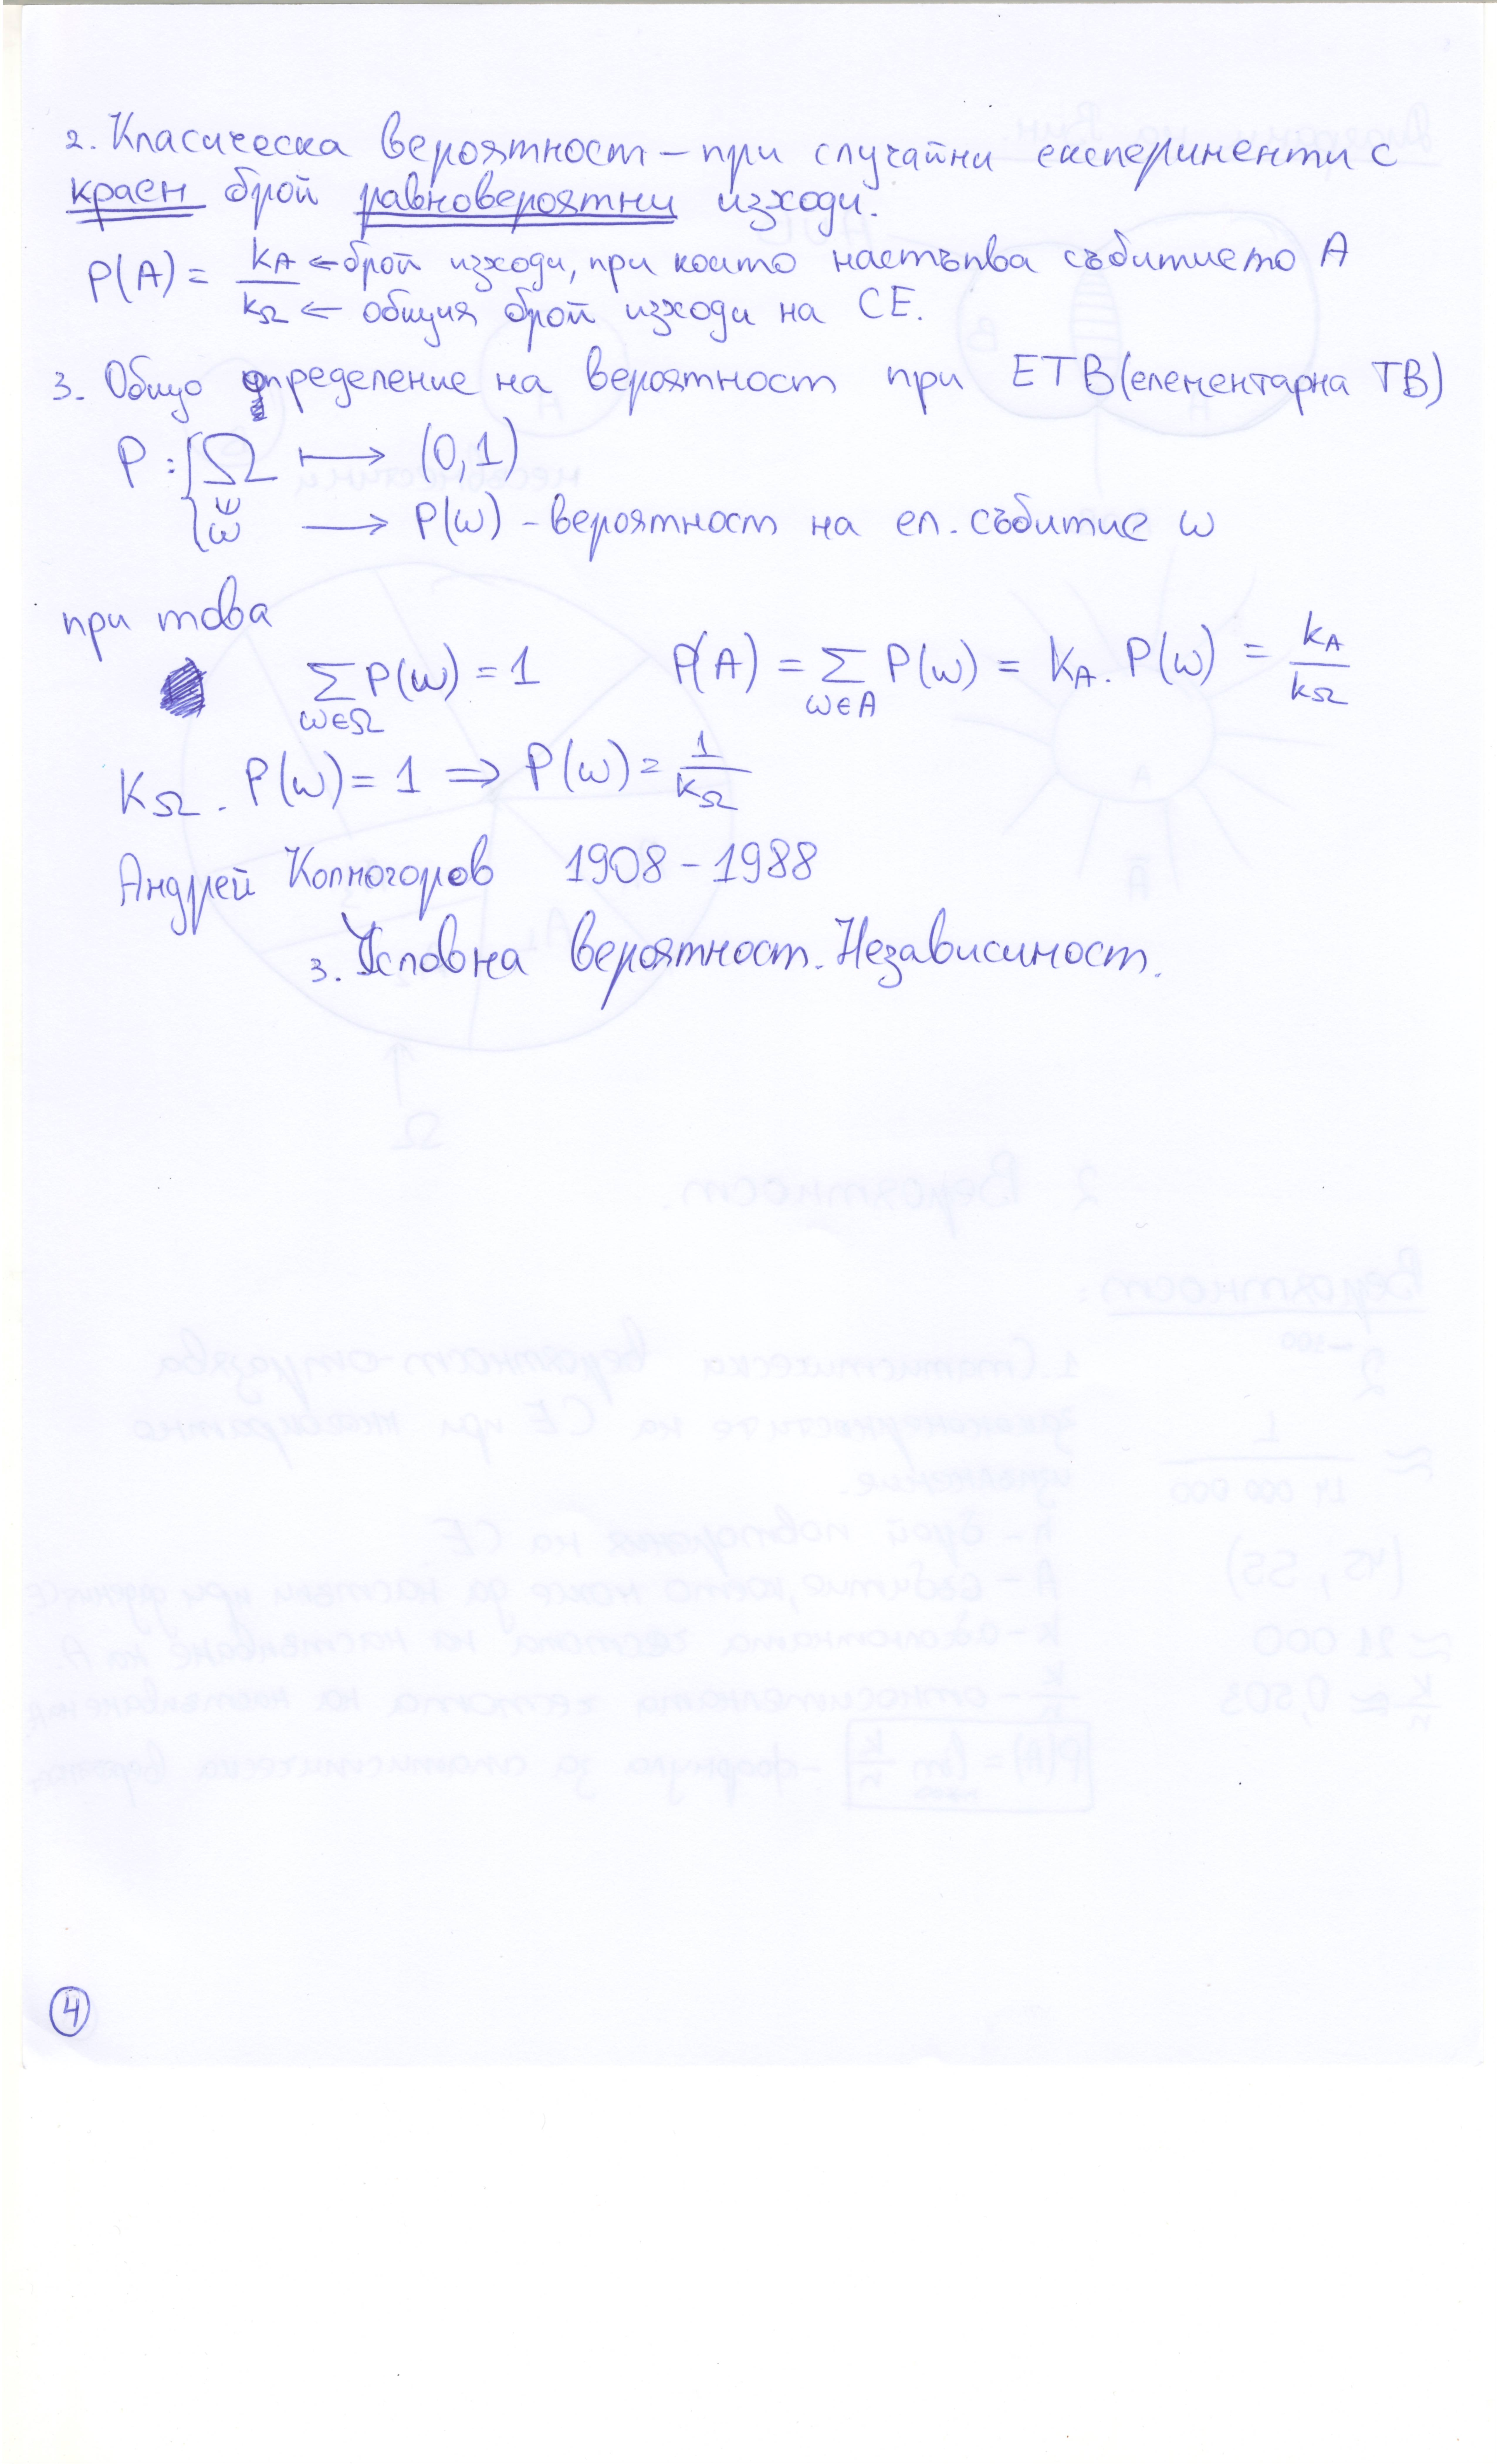 2. Класическа вероятност – при случайни експерименти с
краен брой равновероятни изходи.
P(A) = kA / kΩ ← брой изходи, при които настъпва събитието A
← общия брой изходи на СЕ.
3. Общо определение на вероятност при ЕТВ (елементарна ТВ)
P : { Ω ↦ (0,1)
ω → P(ω) - вероятност на ел. събитие ω
при това
∑ω∈Ω P(ω) = 1 P(A) = ∑ω∈A P(ω) = kA . P(ω) = kA / kΩ
kΩ . P(ω) = 1 ⇒ P(ω) = 1 / kΩ
Андрей Колмогоров 1908 – 1988
3. Условна вероятност. Независимост.
4